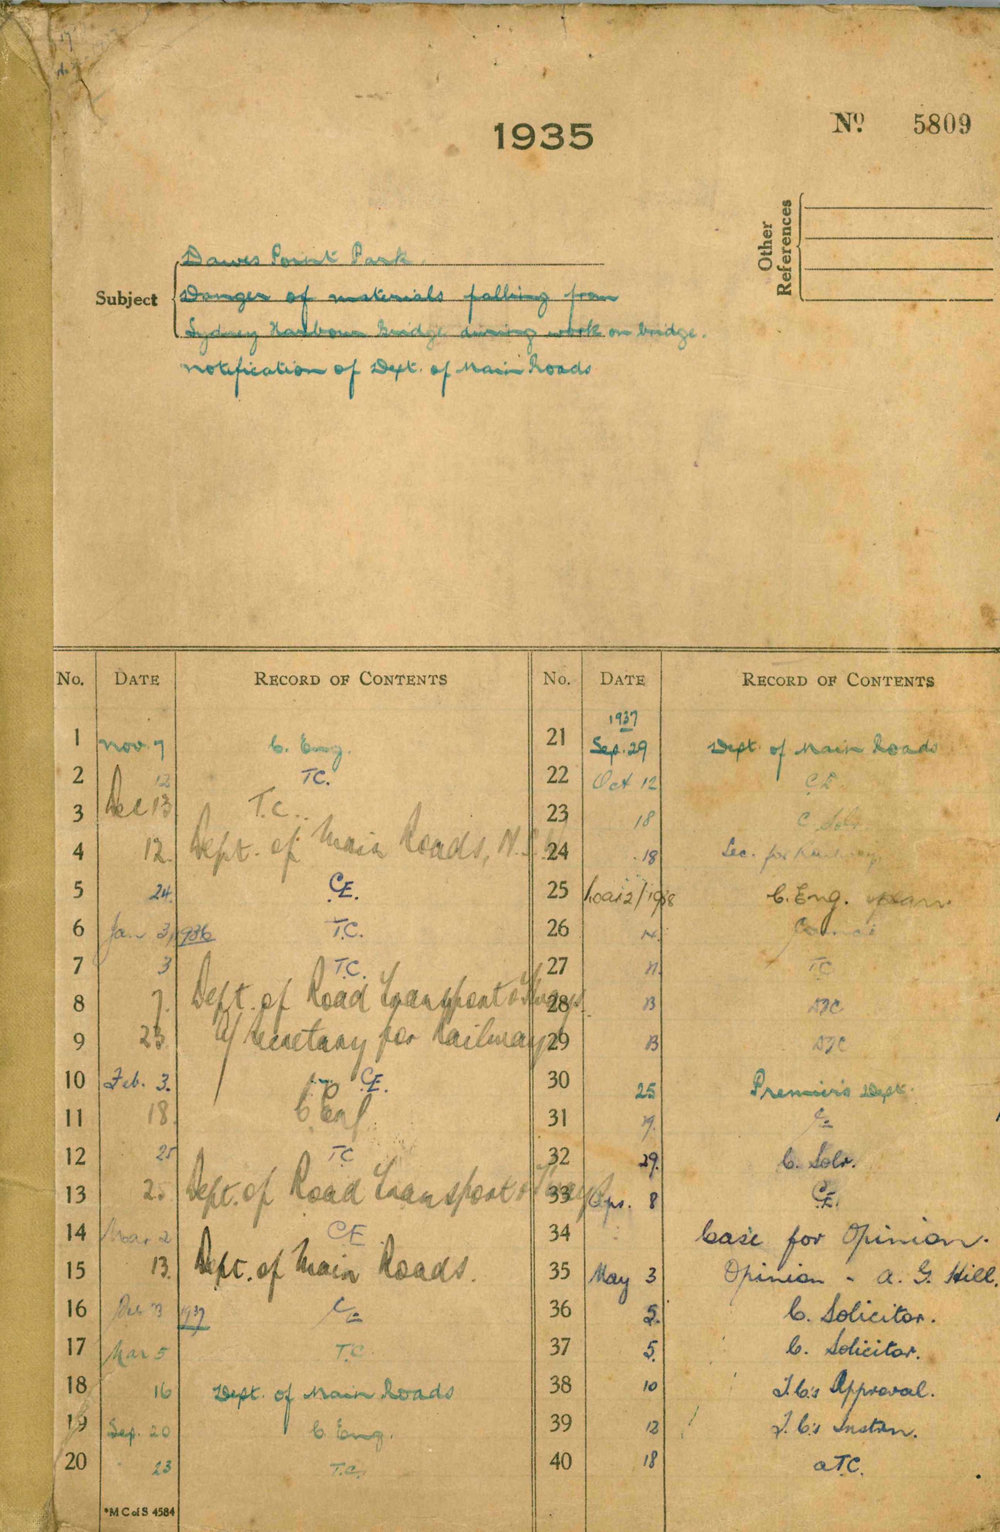 1935
No 5809
Other References
Subject
Dawes Point Park
Danger of materials falling from
Sydney Harbour Bridge during work on bridge.
notification of Dept. of Main Roads
No. DATE RECORD OF CONTENTS
1 Nov. 7 C. Eng.
2 12 T.C.
3 Dec 13 T.C..
4 12. Dept. of Main Roads, N.S.W
5 24. C.E.
6 Jan 3, 1936 T.C.
7 3 T.C.
8 7. Dept. of Road Transport & Tramways
9 23. Secretary for Railways
10 Feb. 3. C.E.
11 18. C. Eng
12 25 TC
13 25 Dept. of Road Transport & Tramways
14 Mar 2 C E
15 13. Dept. of Main Roads.
16 Feb 3 1937
17 Mar 5 T.C.
18 16 Dept. of Main Roads
19 Sep. 20 C. Eng.
20 23 T.C.
*M C of S 4584
No. DATE RECORD OF CONTENTS
1937
21 Sep. 29 Dept. of Main Roads
22 Oct 12 C.E.
23 18 C Solr
24 18 Sec. for Railways
25 C. Eng.
26 Council
27 TC
28 13
29 13
30 25 Premier's Dept.
31
32 29. C. Solr.
33 Apr. 8 C.E.
34 Case for Opinion.
35 May 3 Opinion - A. G. Hill.
36 5. C. Solicitor.
37 5. C. Solicitor.
38 10 T.C's Approval.
39 12 T.C's Instn.
40 18 a T.C.